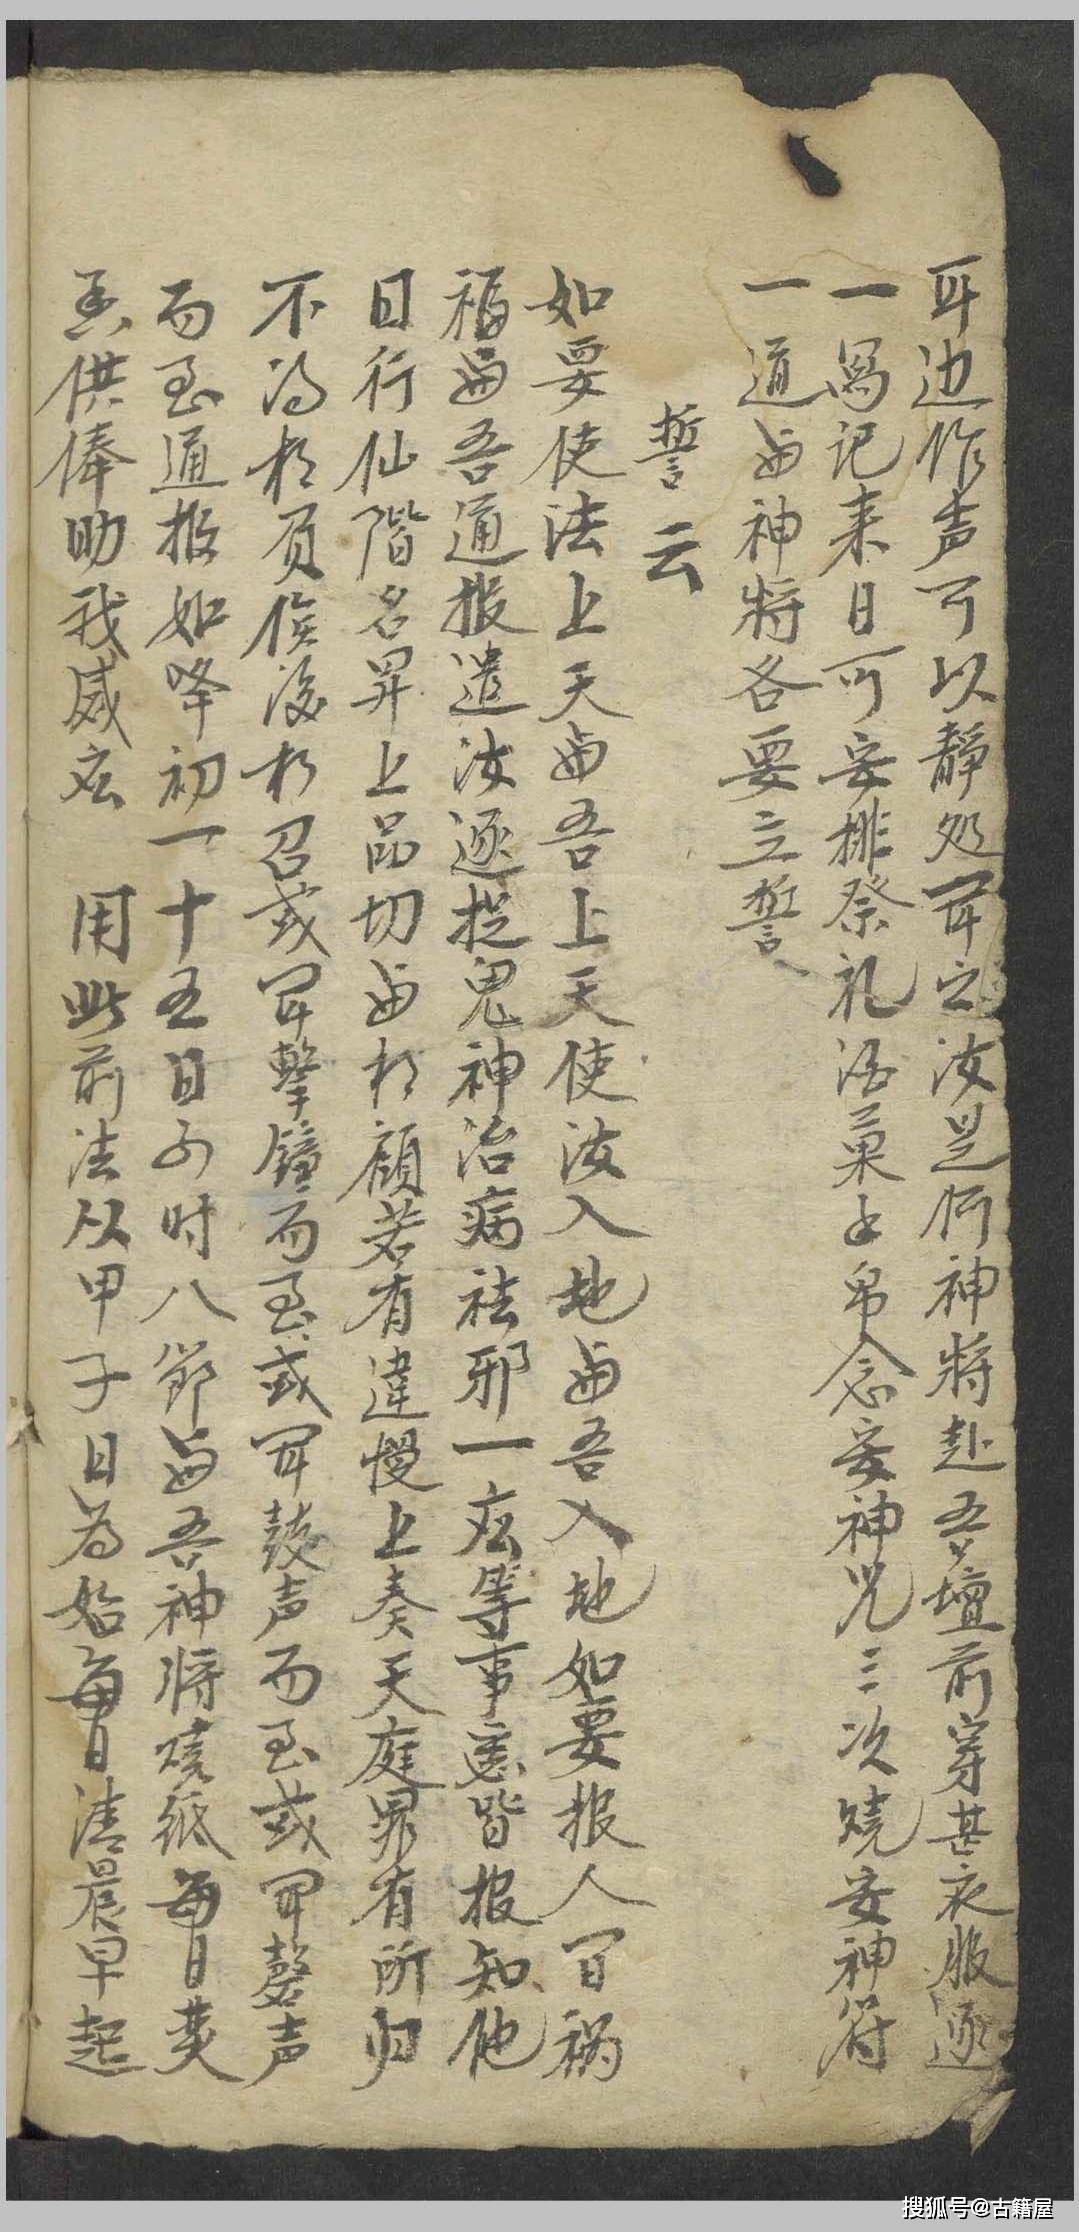 耳边作声可以靜処闻之汝是何神将赴吾壇前穿甚衣服逐
一写记来日可安排祭礼酒菓士帛念安神咒三次燒安神符
一道与神将各要立誓
誓云
如要使法上天与吾上天使汝入地与吾入地如要报人间祸
福与吾通报遣汝逐捉鬼神治病袪邪一应等事悉皆报知他
日行仙階名昇上品切与相顧若有違慢上奏天庭罪有所归
不得相負俟後相召或闻擊鐘而至或闻鼓声而至或闻磬声
而至通报如降初一十五日四时八節与吾神将燒紙每日焚
香供俸助我威灵 用此前法从甲子日为始每日清晨早起
搜狐号@古籍屋